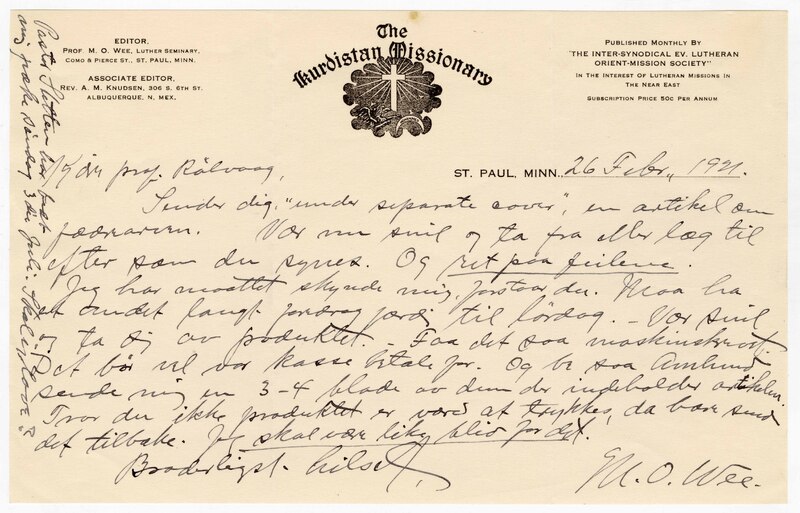 EDITOR,
PROF. M. O. WEE, LUTHER SEMINARY,
COMO & PIERCE ST., ST. PAUL, MINN.
ASSOCIATE EDITOR,
REV. A. M. KNUDSEN, 306 S. 6TH ST.
ALBUQUERQUE, N. MEX.
The
Kurdistan Missionary
PUBLISHED MONTHLY BY
"THE INTER-SYNODICAL EV. LUTHERAN
ORIENT-MISSION SOCIETY"
IN THE INTEREST OF LUTHERAN MISSIONS IN
THE NEAR EAST
SUBSCRIPTION PRICE 50C PER ANNUM
ST. PAUL, MINN., 26 Febr., 1921.
Kjære prof. Rölvaag,
Sender dig, "under separate cover", en artikel om
fædrearven. Vær nu snil og ta fra eller læg til
efter som du synes. Og ret paa feilene.
Jeg har maattet skynde mig, forstaar du. Maa ha
et andet langt foredrag færdi til lördag. – Vær snil
og ta dig av produktet. – Faa det saa maskinskrevet.
Det bör vel vor kasse betale for. Og be saa Amlund
sende mig en 3–4 blade av dem der indeholder artikelen.
Tror du ikke produktet er værd at trykkes, da bare send
det tilbake. Jeg skal være like blid for det.
Broderligst hilset,
M. O. Wee.
Pastor
mig præke söndag 3die juli.